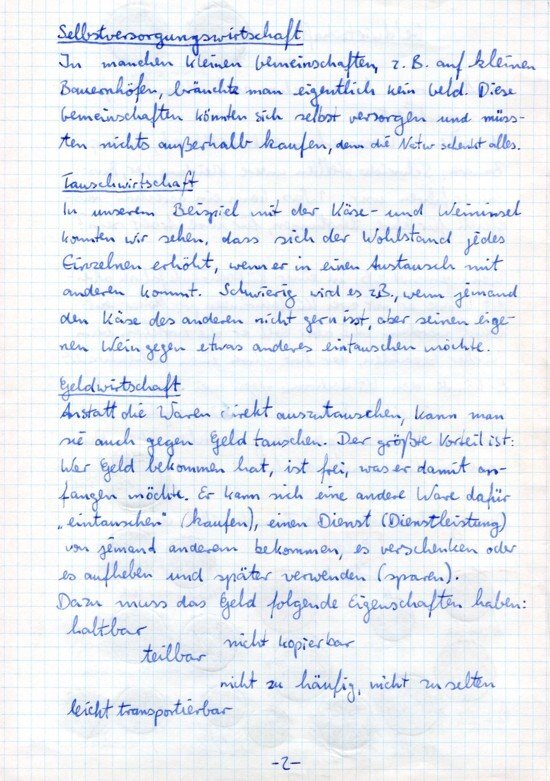 Selbstversorgungswirtschaft
In manchen kleinen Gemeinschaften, z.B. auf kleinen
Bauernhöfen, bräuchte man eigentlich kein Geld. Diese
Gemeinschaften könnten sich selbst versorgen und müss-
ten nichts außerhalb kaufen, denn die Natur schenkt alles.
Tauschwirtschaft
In unserem Beispiel mit der Käse- und Weininsel
konnten wir sehen, dass sich der Wohlstand jedes
Einzelnen erhöht, wenn er in einen Austausch mit
anderen kommt. Schwierig wird es z.B., wenn jemand
den Käse des anderen nicht gern isst, aber seinen eige-
nen Wein gegen etwas anderes eintauschen möchte.
Geldwirtschaft
Anstatt die Waren direkt auszutauschen, kann man
sie auch gegen Geld tauschen. Der größte Vorteil ist:
Wer Geld bekommen hat, ist frei, was er damit an-
fangen möchte. Er kann sich eine andere Ware dafür
„eintauschen" (kaufen), einen Dienst (Dienstleistung)
von jemand anderem bekommen, es verschenken oder
es aufheben und später verwenden (sparen).
Dazu muss das Geld folgende Eigenschaften haben:
haltbar
nicht kopierbar
teilbar
nicht zu häufig, nicht zu selten
leicht transportierbar
-2-